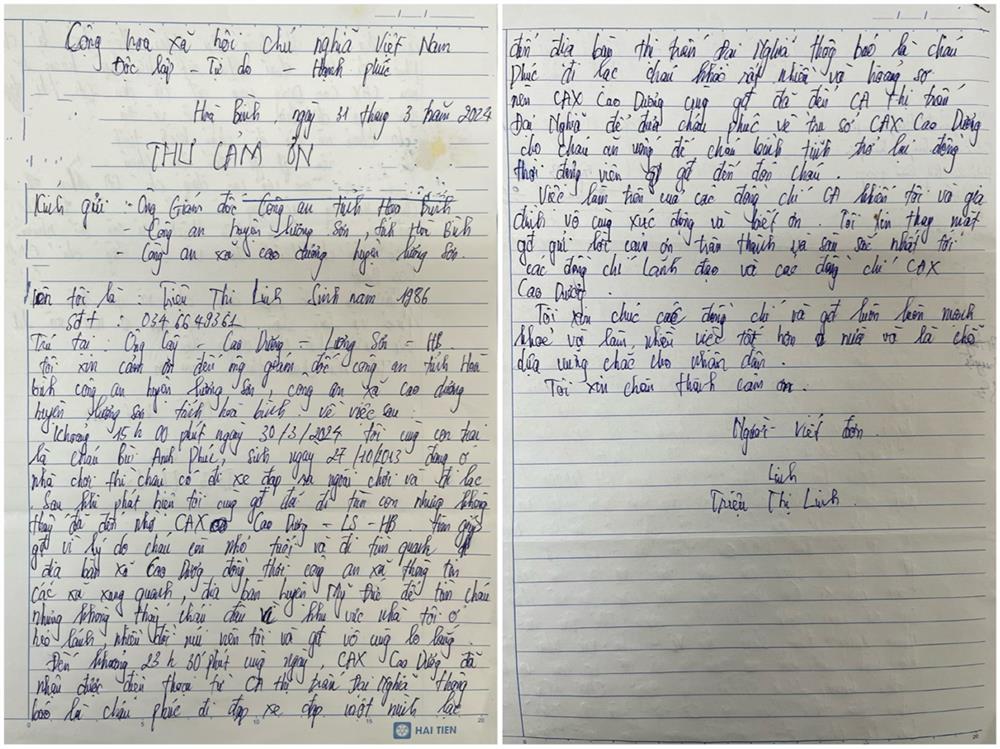 Cộng hoà xã hội chủ nghĩa Việt Nam
Độc lập - Tự do - Hạnh phúc
Hoà Bình, ngày 31 tháng 3 năm 2024
THƯ CẢM ƠN
Kính gửi: Ông Giám đốc Công an tỉnh Hoà Bình
- Công an huyện Lương Sơn, tỉnh Hoà Bình
- Công an xã Cao Dương huyện Lương Sơn.
Tên tôi là: Triệu Thị Linh Sinh năm 1986
Sđt: 0346649361
Trú tại: Ông - Cao Dương - Lương Sơn - HB
tôi xin cảm ơn đến ông giám đốc công an tỉnh Hoà
bình công an huyện lương sơn, công an xã cao dương
huyện lương sơn tỉnh hoà bình về việc sau:
Khoảng 15h 00 phút ngày 30/3/2024 tôi cùng con trai
là cháu Bùi Anh Phúc, sinh ngày 27/10/2013 đang ở
nhà chơi thì cháu có đi xe đạp ra ngoài chơi và đi lạc
. Sau khi phát hiện tôi cùng gđ đã đi tìm con nhưng không
thấy đã đến nhờ CAX Cao Dương - LS - HB. tìm giúp
gđ vì lý do cháu còn nhỏ tuổi và đi tìm quanh
địa bàn xã Cao Dương đồng thời công an xã thông tin
các xã xung quanh, địa bàn huyện Mỹ Đức để tìm cháu
nhưng không thấy cháu đâu vì khu vực nhà tôi ở
heo lánh nhiều đồi núi nên tôi và gđ vô cùng lo lắng.
Đến khoảng 23h 30 phút cùng ngày, CAX Cao Dương đã
nhận được điện thoại từ CA thị trấn Đại Nghĩa thông
báo là cháu phúc đi đạp xe đạp một mình lạc
đến địa bàn thị trấn Đại Nghĩa thông báo là cháu
phúc đi lạc cháu khóc rất nhiều và hoảng sợ
nên CAX Cao Dương cùng gđ đã đến CA thị trấn
Đại Nghĩa để đưa cháu phúc về trụ sở CAX Cao Dương
cho cháu ăn uống để cháu bình tĩnh trở lại đồng
thời động viên gđ đến đón cháu.
Việc làm trên của các đồng chí CA khiến tôi và gia
đình vô cùng xúc động và biết ơn. Tôi xin thay mặt
gđ gửi lời cảm ơn chân thành và sâu sắc nhất tới
các đồng chí lãnh đạo và các đồng chí CAX
Cao Dương.
Tôi xin chúc các đồng chí và gđ luôn luôn mạnh
khoẻ và làm nhiều việc tốt hơn nữa và là chỗ
dựa vững chắc cho nhân dân.
Tôi xin chân thành cảm ơn.
Người viết đơn
Linh
Triệu Thị Linh
HAI TIEN